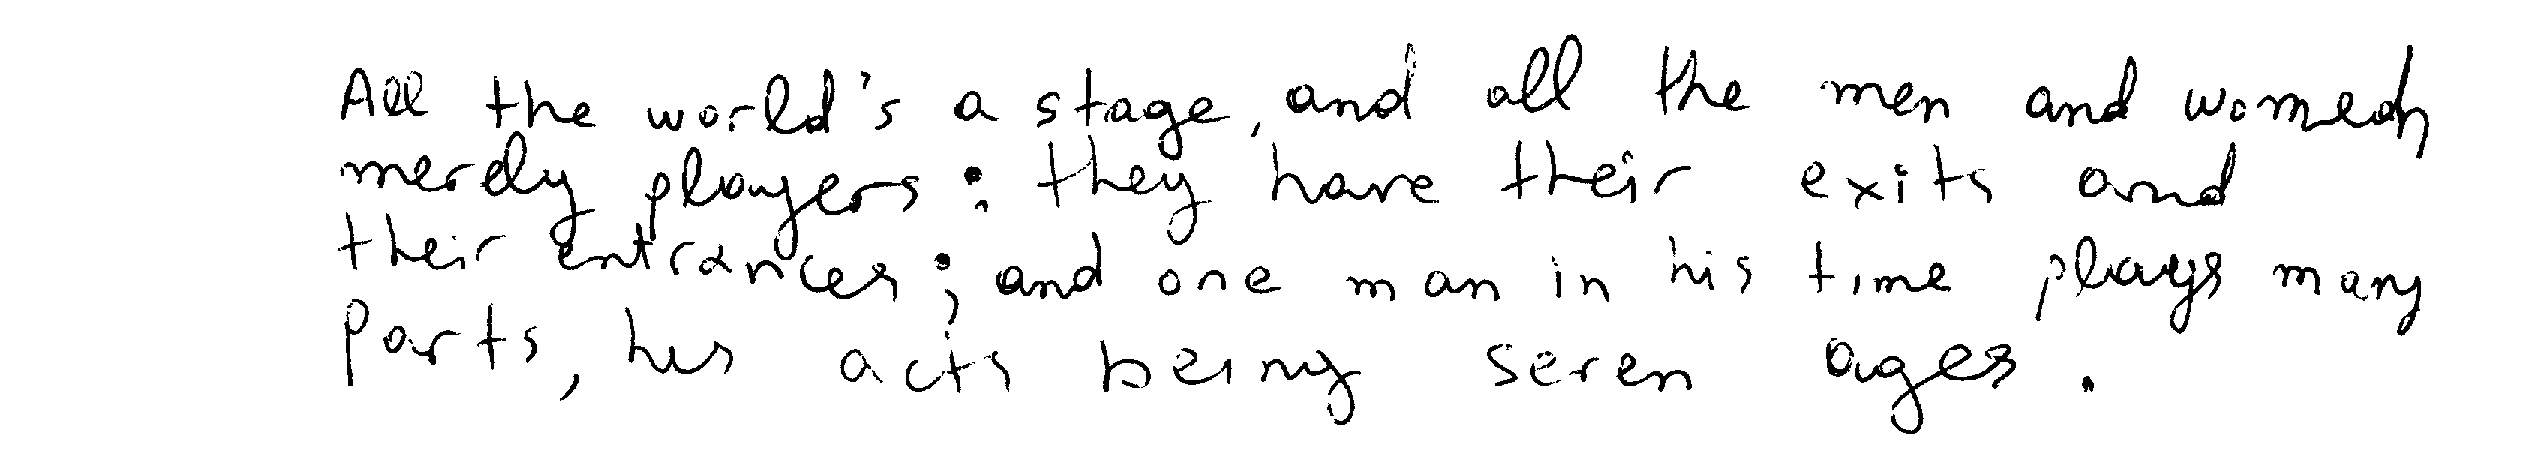 All the world's a stage, and all the men and women
merely players: they have their exits and
their entrances; and one man in his time plays many
parts, his acts being seven ages.